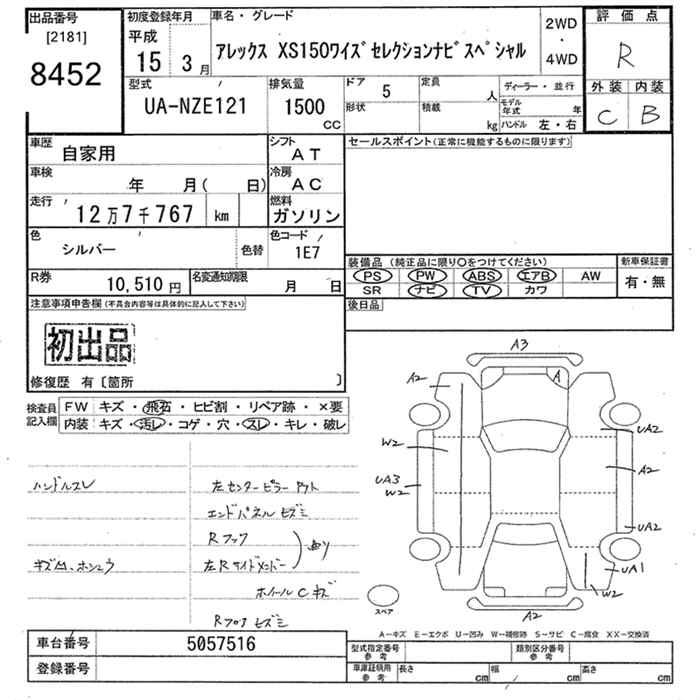 出品番号
[2181]
8452
初度登録年月
平成
15年 3月
車名・グレード
アレックス XS150ワイズセレクションナビスペシャル
2WD
・
4WD
評価点
R
外装 内装
C B
型式
UA-NZE121
排気量
1500
CC
ドア 5
形状
定員 人
積載 kg
ディーラー・並行
モデル年式 年
ハンドル 左・右
車歴 自家用
シフト AT
車検 年 月( 日)
冷房 AC
走行 12万7千767 km
燃料 ガソリン
色 シルバー 色替
色コード 1E7
R券 10,510円
名変通知期限 月 日
セールスポイント(正常に機能するものに限ります)
装備品 (純正品に限り〇をつけてください)
PS PW ABS エアB AW
SR ナビ TV カワ
新車保証書
有・無
後日品
注意事項申告欄(不具合内容等は具体的に記入して下さい)
初出品
修復歴 有〔箇所 〕
検査員記入欄
FW キズ・飛石・ヒビ割・リペア跡・×要
内装 キズ・汚レ・コゲ・穴・スレ・キレ・破レ
ハンドルスレ
左センターピラー アウト
エンドパネル ヒズミ
Rフック
左Rサイドメンバー
ホイールCキズ
A3
A2
A
W2
UA3
W2
UA2
A2
UA2
UA1
W2
A2
スペア
A-キズ E-エクボ U-凹み W-補修跡 S-サビ C-腐食 XX-交換済
車台番号 5057516
登録番号
型式指定番号 参考
類別区分番号 参考
車庫証明用 参考
長さ cm
幅 cm
高さ cm